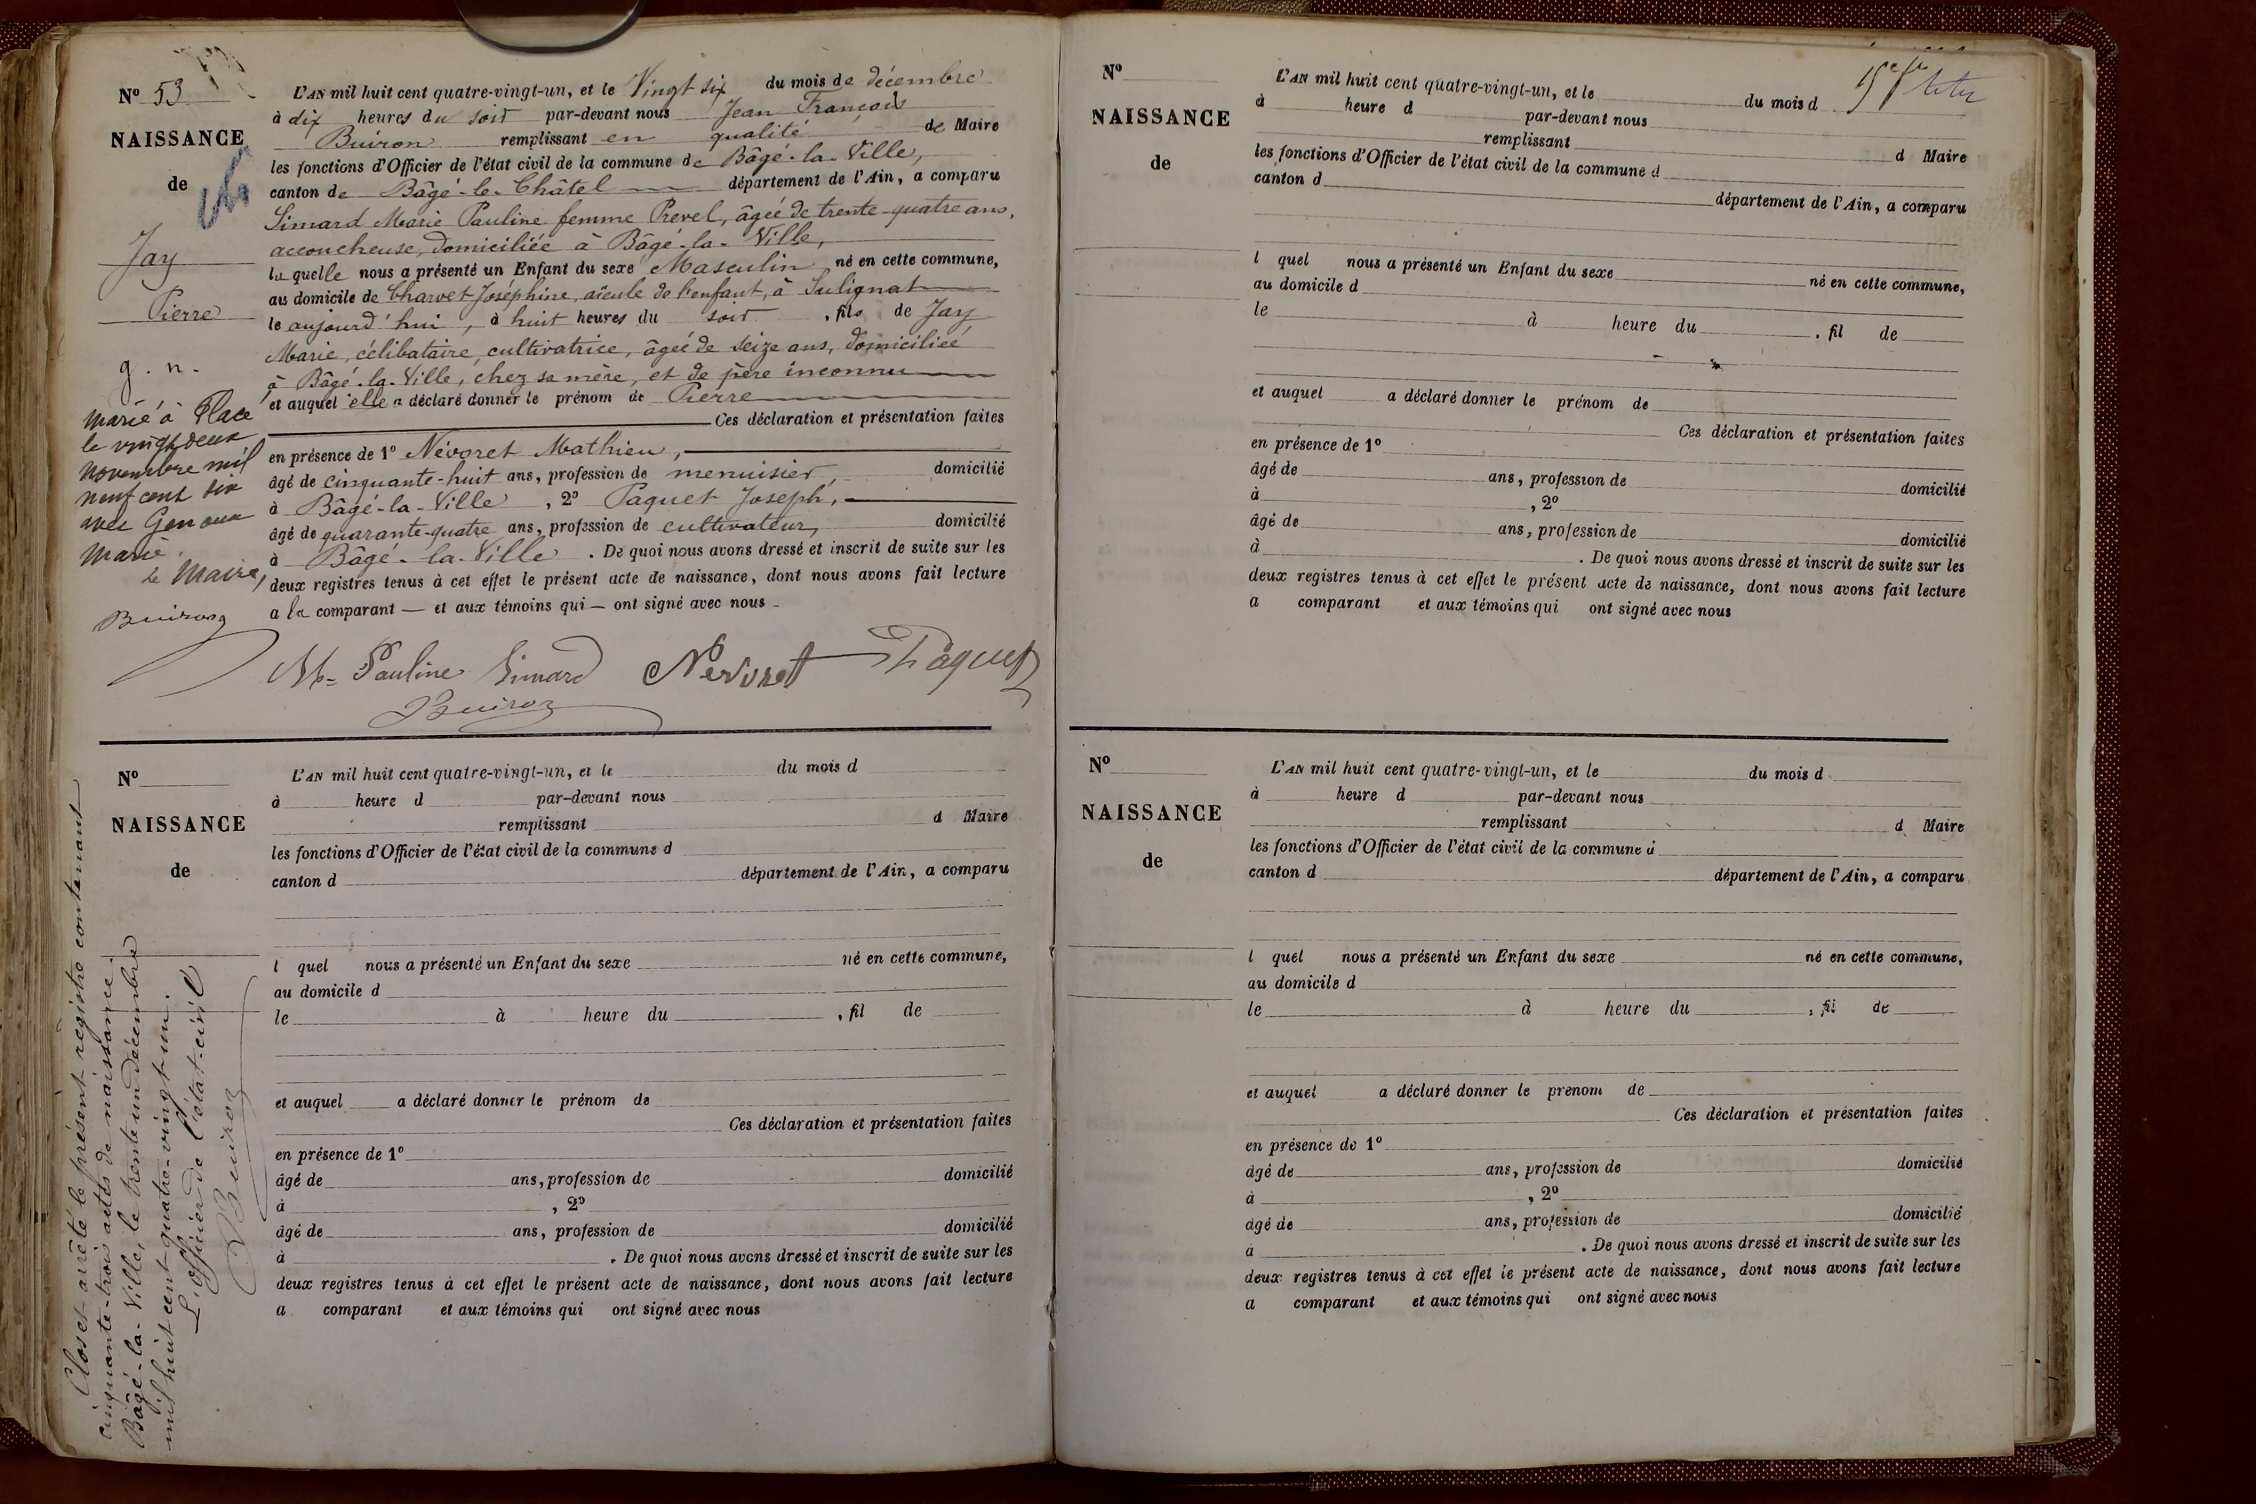 Nº 53
NAISSANCE
de
Jay
Pierre
g. n.
marié à Placé
le vingt deux
novembre mil
neuf cent six
avec Genoux
Marie.
Le Maire,
Buiron
L'AN mil huit cent quatre-vingt-un, et le Vingt six du mois de décembre
à dix heures du soir par-devant nous Jean François
Buiron remplissant en qualité de Maire
les fonctions d'Officier de l'état civil de la commune de Bâgé-la-Ville,
canton de Bâgé-le-Châtel département de l'Ain, a comparu
Simard Marie Pauline femme Prevel, âgée de trente-quatre ans,
accoucheuse, domiciliée à Bâgé-la-Ville,
laquelle nous a présenté un Enfant du sexe Masculin né en cette commune,
au domicile de Charvet Joséphine, aïeule de l'enfant, à Sulignat
le aujourd'hui, à huit heures du soir, fils de Jay
Marie, célibataire, cultivatrice, âgée de seize ans, domiciliée
à Bâgé-la-Ville, chez sa mère, et de père inconnu
et auquel elle a déclaré donner le prénom de Pierre
Ces déclaration et présentation faites
en présence de 1º Névoret Mathieu,
âgé de cinquante-huit ans, profession de menuisier, domicilié
à Bâgé-la-Ville, 2º Paquet Joseph,
âgé de quarante-quatre ans, profession de cultivateur, domicilié
à Bâgé-la-Ville. De quoi nous avons dressé et inscrit de suite sur les
deux registres tenus à cet effet le présent acte de naissance, dont nous avons fait lecture
a la comparant — et aux témoins qui — ont signé avec nous -
M= Pauline Simard Nevoret Paquet
Buiron
Nº
NAISSANCE
de
L'AN mil huit cent quatre-vingt-un, et le du mois d
à heure d par-devant nous
remplissant d Maire
les fonctions d'Officier de l'état civil de la commune d
canton d département de l'Ain, a comparu
l quel nous a présenté un Enfant du sexe né en cette commune,
au domicile d
le à heure du , fil de
et auquel a déclaré donner le prénom de
Ces déclaration et présentation faites
en présence de 1º
âgé de ans, profession de domicilié
à , 2º
âgé de ans, profession de domicilié
à . De quoi nous avons dressé et inscrit de suite sur les
deux registres tenus à cet effet le présent acte de naissance, dont nous avons fait lecture
a comparant et aux témoins qui ont signé avec nous
Clos et arrêté le présent registre contenant
cinquante-trois actes de naissance.
Bâgé-la-Ville, le trente un décembre
mil huit cent quatre-vingt un.
L'officier de l'état-civil
Buiron
Nº
NAISSANCE
de
L'AN mil huit cent quatre-vingt-un, et le du mois d
à heure d par-devant nous
remplissant d Maire
les fonctions d'Officier de l'état civil de la commune d
canton d département de l'Ain, a comparu
l quel nous a présenté un Enfant du sexe né en cette commune,
au domicile d
le à heure du , fil de
et auquel a déclaré donner le prénom de
Ces déclaration et présentation faites
en présence de 1º
âgé de ans, profession de domicilié
à , 2º
âgé de ans, profession de domicilié
à . De quoi nous avons dressé et inscrit de suite sur les
deux registres tenus à cet effet le présent acte de naissance, dont nous avons fait lecture
a comparant et aux témoins qui ont signé avec nous
Nº
NAISSANCE
de
L'AN mil huit cent quatre-vingt-un, et le du mois d
à heure d par-devant nous
remplissant d Maire
les fonctions d'Officier de l'état civil de la commune d
canton d département de l'Ain, a comparu
l quel nous a présenté un Enfant du sexe né en cette commune,
au domicile d
le à heure du , fil de
et auquel a déclaré donner le prenom de
Ces déclaration et présentation faites
en présence de 1º
âgé de ans, profession de domicilié
à , 2º
âgé de ans, profession de domicilié
à . De quoi nous avons dressé et inscrit de suite sur les
deux registres tenus à cet effet le présent acte de naissance, dont nous avons fait lecture
a comparant et aux témoins qui ont signé avec nous